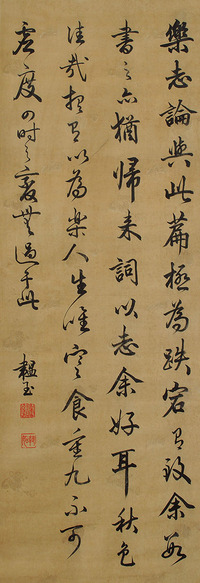 樂志論與此篇極為跌宕有致余每
書之亦猶歸來詞以志余好耳秋色
佳哉想有以為樂人生唯寒食重九不可
虛度四時之變無過于此
韞玉